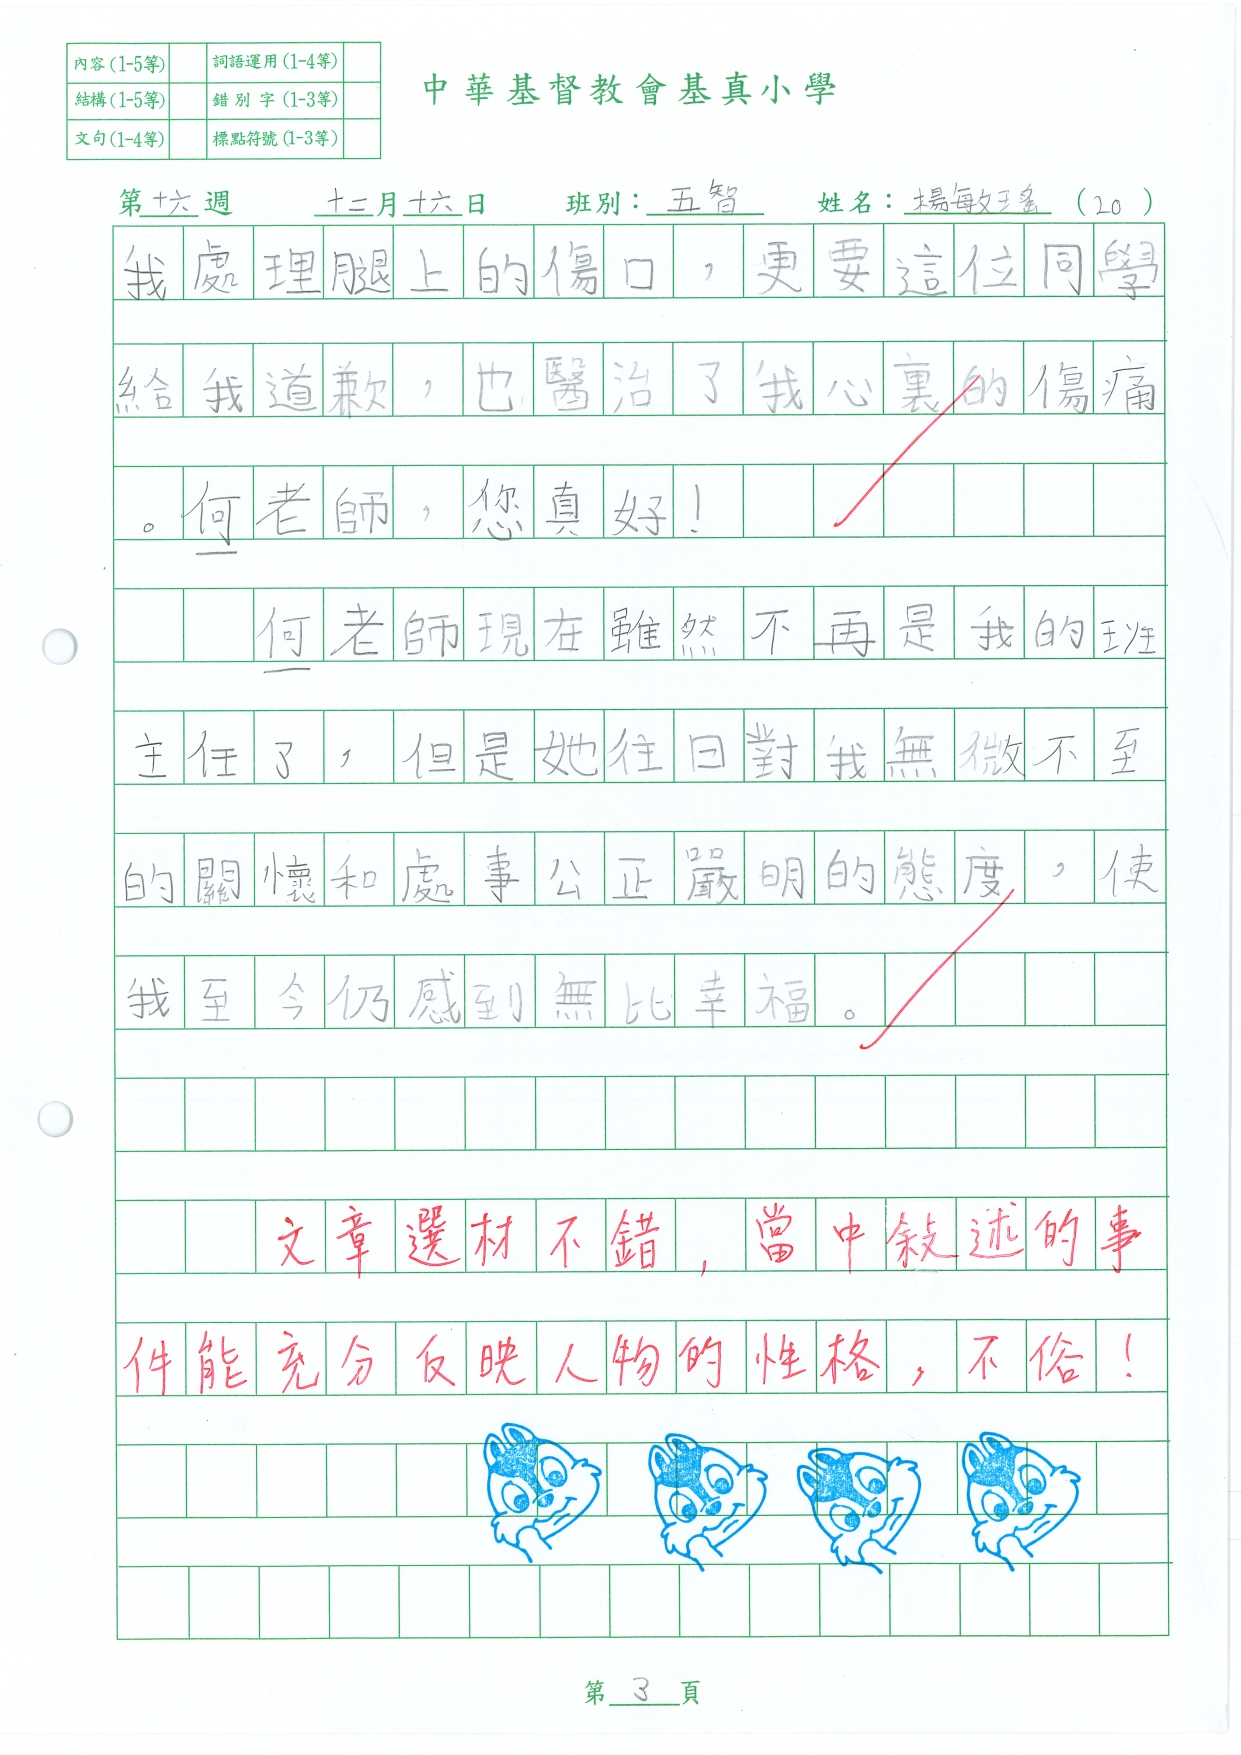 內容(1-5等) 詞語運用(1-4等)
結構(1-5等) 錯別字(1-3等)
文句(1-4等) 標點符號(1-3等)
中華基督教會基真小學
第十六週 十二月十六日 班別：五智 姓名：楊敏瑤（20）
我處理腿上的傷口，更要這位同學
給我道歉，也醫治了我心裏的傷痛
。何老師，您真好！
何老師現在雖然不再是我的班
主任了，但是她往日對我無微不至
的關懷和處事公正嚴明的態度，使
我至今仍感到無比幸福。
文章選材不錯，當中敍述的事
件能充分反映人物的性格，不俗！
第3頁